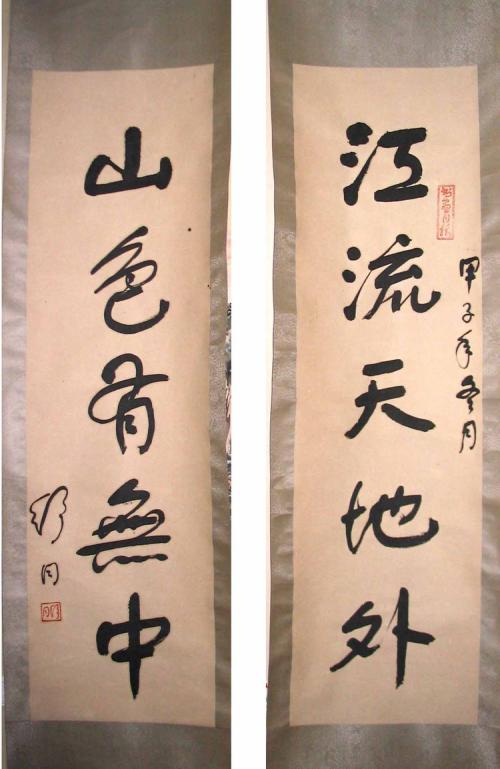 江流天地外
甲子年冬月
山色有無中
舒同